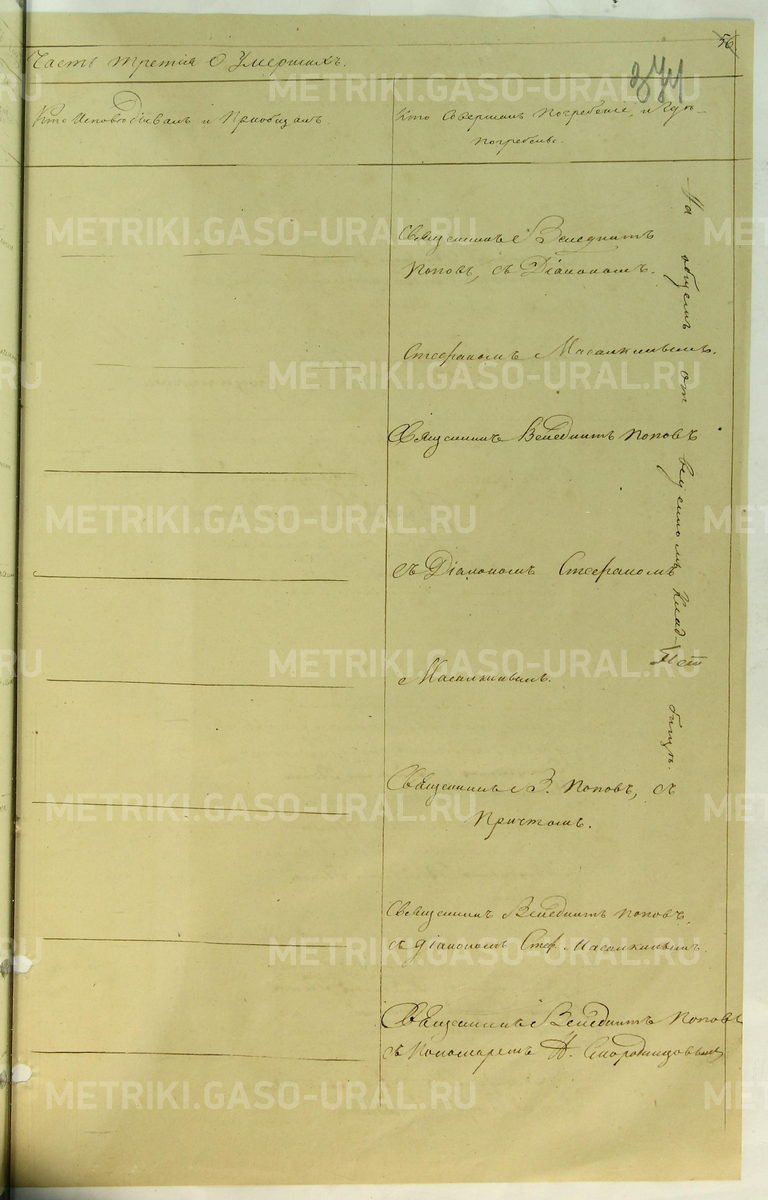 56
371
Часть третія О Умершихъ.
Кто Исповѣдывалъ и Пріобщалъ.
Кто Совершалъ Погребеніе, и гдѣ
погребены.
Священникъ Венедиктъ
Поповъ, съ Діакономъ
Стефаномъ Масалкинымъ.
Священникъ Венедиктъ Поповъ
съ Діакономъ Стефаномъ
Масалкинымъ.
Священникъ В. Поповъ, съ
Причтомъ.
Священникъ Венедиктъ Поповъ
съ діакономъ Стеф. Масалкинымъ.
Священникъ Венедиктъ Поповъ
съ Пономаремъ Н. Смородинцовымъ
На общемъ отведенномъ клад-
бищѣ.
METRIKI.GASO-URAL.RU